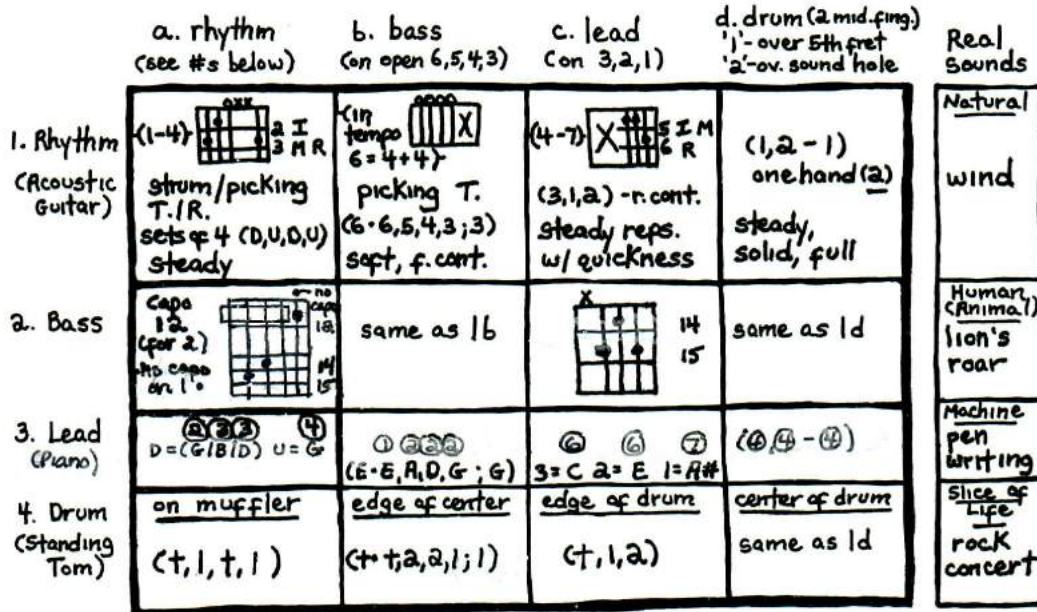 a. rhythm
(see #s below)
b. bass
(on open 6,5,4,3)
c. lead
(on 3,2,1)
d. drum (2 mid. fing.)
'1'-over 5th fret
'2'-ov. sound hole
Real
Sounds
1. Rhythm
(Acoustic
Guitar)
oxx
(1-4)
2 I
3 M R
strum/picking
T./R.
sets of 4 (D,U,D,U)
steady
oooo
(in
tempo
6=4+4)
X
picking T.
(6·6,5,4,3;3)
soft, f. cont.
(4-7)
X
5 I M
6 R
(3,1,2)-r. cont.
steady reps.
w/ quickness
(1,2-1)
one hand (2)
steady,
solid, full
Natural
wind
2. Bass
Capo
12
(for 2)
no
capo
12
14
15
No capo
on 1
same as 1b
X
14
15
same as 1d
Human,
(Animal)
lion's
roar
3. Lead
(Piano)
2 3 3 4
D=(G/B/D) U=G
1 2 2 2
(E·E,A,D,G;G)
6 6 7
3=C 2=E 1=A#
(4,4-4)
Machine
pen
writing
4. Drum
(Standing
Tom)
on muffler
(t,1,t,1)
edge of center
(t·t,2,2,1;1)
edge of drum
(t,1,2)
center of drum
same as 1d
Slice of
Life
rock
concert